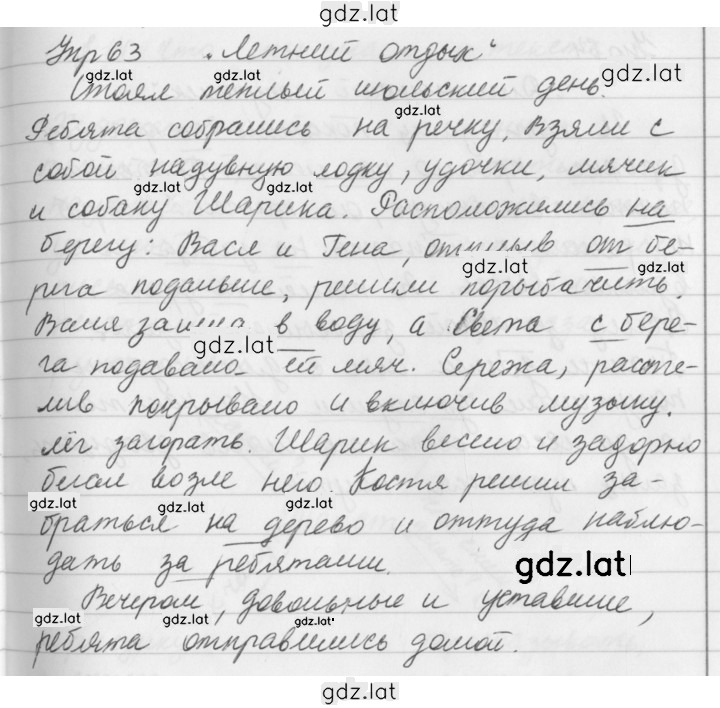 gdz.lat
Упр 63 „Летний отдых“
gdz.lat gdz.lat
Стоял тёплый июльский день.
gdz.lat gdz.lat
Ребята собрались на речку. Взяли с
собой надувную лодку, удочки, мячик
gdz.lat gdz.lat
и собаку Шарика. Расположились на
берегу: Вася и Гена, отплыв от бе-
gdz.lat gdz.lat
рега подальше, решили порыбачить.
Валя зашла в воду, а Света с бере-
gdz.lat
га подавала ей мяч. Сережа, рассте-
лив покрывало и включив музыку,
лёг загорать. Шарик весело и задорно
бегал возле него. Костя решил за-
gdz.lat gdz.lat gdz.lat
браться на дерево и оттуда наблю-
дать за ребятами.
gdz.lat
Вечером, довольные и уставшие,
gdz.lat gdz.lat gdz.lat
ребята отправились домой.
gdz.lat